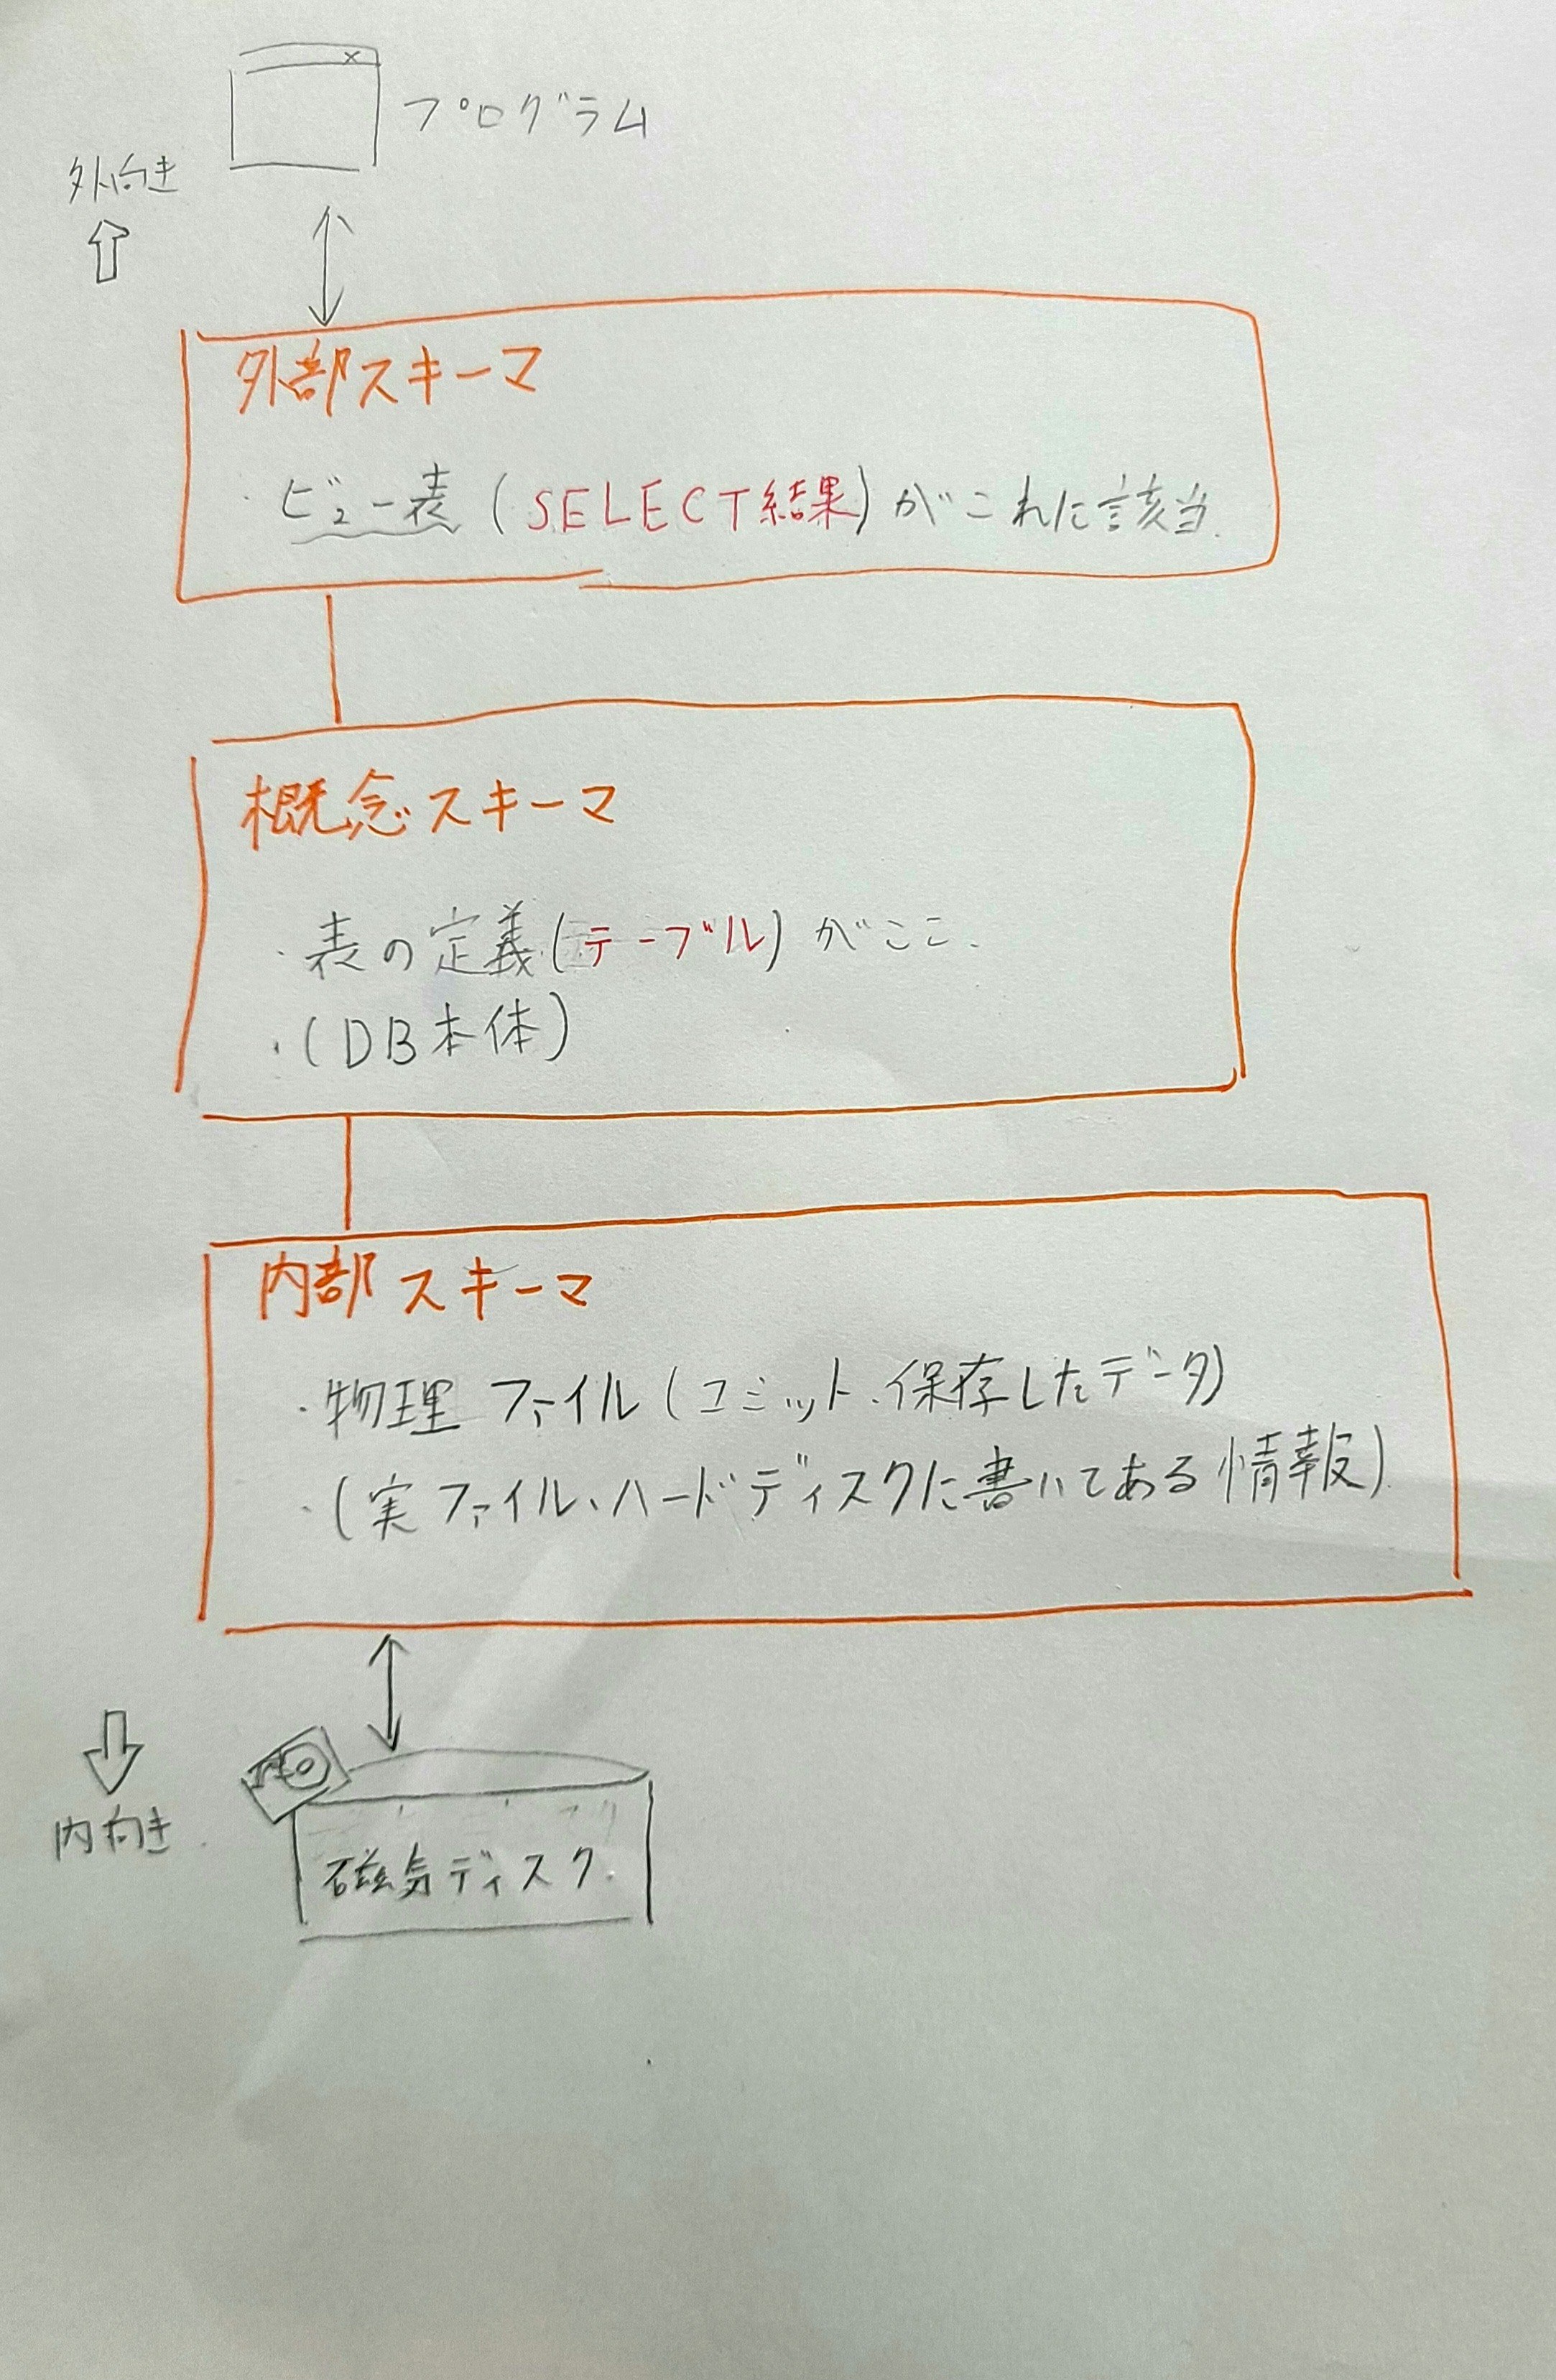 プログラム
外向き
外部スキーマ
・ビュー表(SELECT結果)がこれに該当.
概念スキーマ
・表の定義(テーブル)がここ.
・(DB本体)
内部スキーマ
・物理ファイル(コミット、保存したデータ)
・(実ファイル、ハードディスクに書いてある情報)
内向き
磁気ディスク.